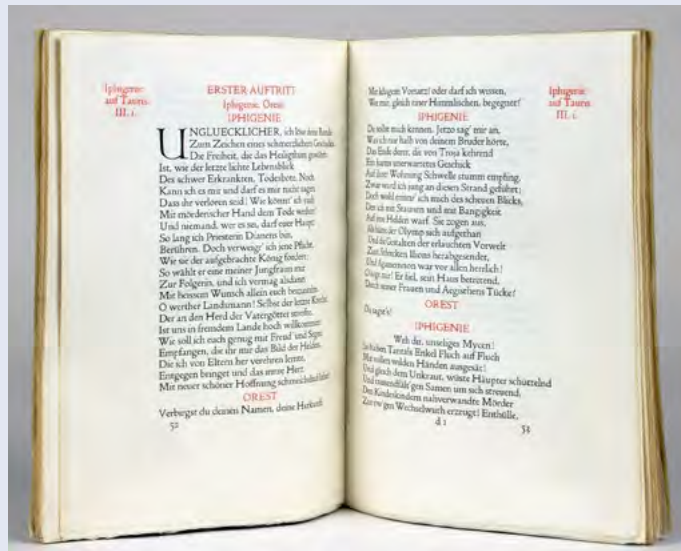 Iphigenie
auf Tauris
III. 1.
ERSTER AUFTRITT
Iphigenie. Orest
IPHIGENIE
UNGLUECKLICHER, ich löse deine Bande
Zum Zeichen eines schmerzlichern Geschicks.
Die Freiheit, die das Heiligthum gewährt,
Ist, wie der letzte lichte Lebensblick
Des schwer Erkrankten, Todesbote. Noch
Kann ich es mir und darf es mir nicht sagen,
Dass ihr verloren seid! Wie könnt' ich euch
Mit mörderischer Hand dem Tode weihen?
Und niemand, wer es sei, darf euer Haupt,
So lang ich Priesterin Dianens bin,
Berühren. Doch verweigr' ich jene Pflicht,
Wie sie der aufgebrachte König fordert:
So wählt er eine meiner Jungfraun mir
Zur Folgerin, und ich vermag alsdann
Mit heissem Wunsch allein euch beizustehn.
O werther Landsmann! Selbst der letzte Knecht,
Der an den Herd der Vatergötter streifte,
Ist uns in fremdem Lande hoch willkommen:
Wie soll ich euch genug mit Freud' und Segen
Empfangen, die ihr mir das Bild der Helden,
Die ich von Eltern her verehren lernte,
Entgegen bringet und das innre Herz
Mit neuer schöner Hoffnung schmeichelnd labet!
OREST
Verbirgst du deinen Namen, deine Herkunft
52
Mit klugem Vorsatz? oder darf ich wissen,
Wer mir, gleich einer Himmlischen, begegnet?
IPHIGENIE
Du sollst mich kennen. Jetzo sag' mir an,
Was ich nur halb von deinem Bruder hörte,
Das Ende derer, die von Troja kehrend
Ein hartes unerwartetes Geschick
Auf ihrer Wohnung Schwelle stumm empfing.
Zwar ward ich jung an diesen Strand geführt;
Doch wohl erinnr' ich mich des scheuen Blicks,
Den ich mit Staunen und mit Bangigkeit
Auf jene Helden warf. Sie zogen aus,
Als hätte der Olymp sich aufgethan
Und die Gestalten der erlauchten Vorwelt
Zum Schrecken Ilions herabgesendet,
Und Agamemnon war vor allen herrlich!
O sage mir! Er fiel, sein Haus betretend,
Durch seiner Frauen und Aegisthens Tücke?
OREST
Du sagst's!
IPHIGENIE
Weh dir, unseliges Mycen!
So haben Tantals Enkel Fluch auf Fluch
Mit vollen wilden Händen ausgesät!
Und gleich dem Unkraut, wüste Häupter schüttelnd
Und tausendfält'gen Samen um sich streuend,
Den Kindeskindern nahverwandte Mörder
Zur ew'gen Wechselwuth erzeugt! Enthülle,
d 2
53
Iphigenie
auf Tauris
III. 1.